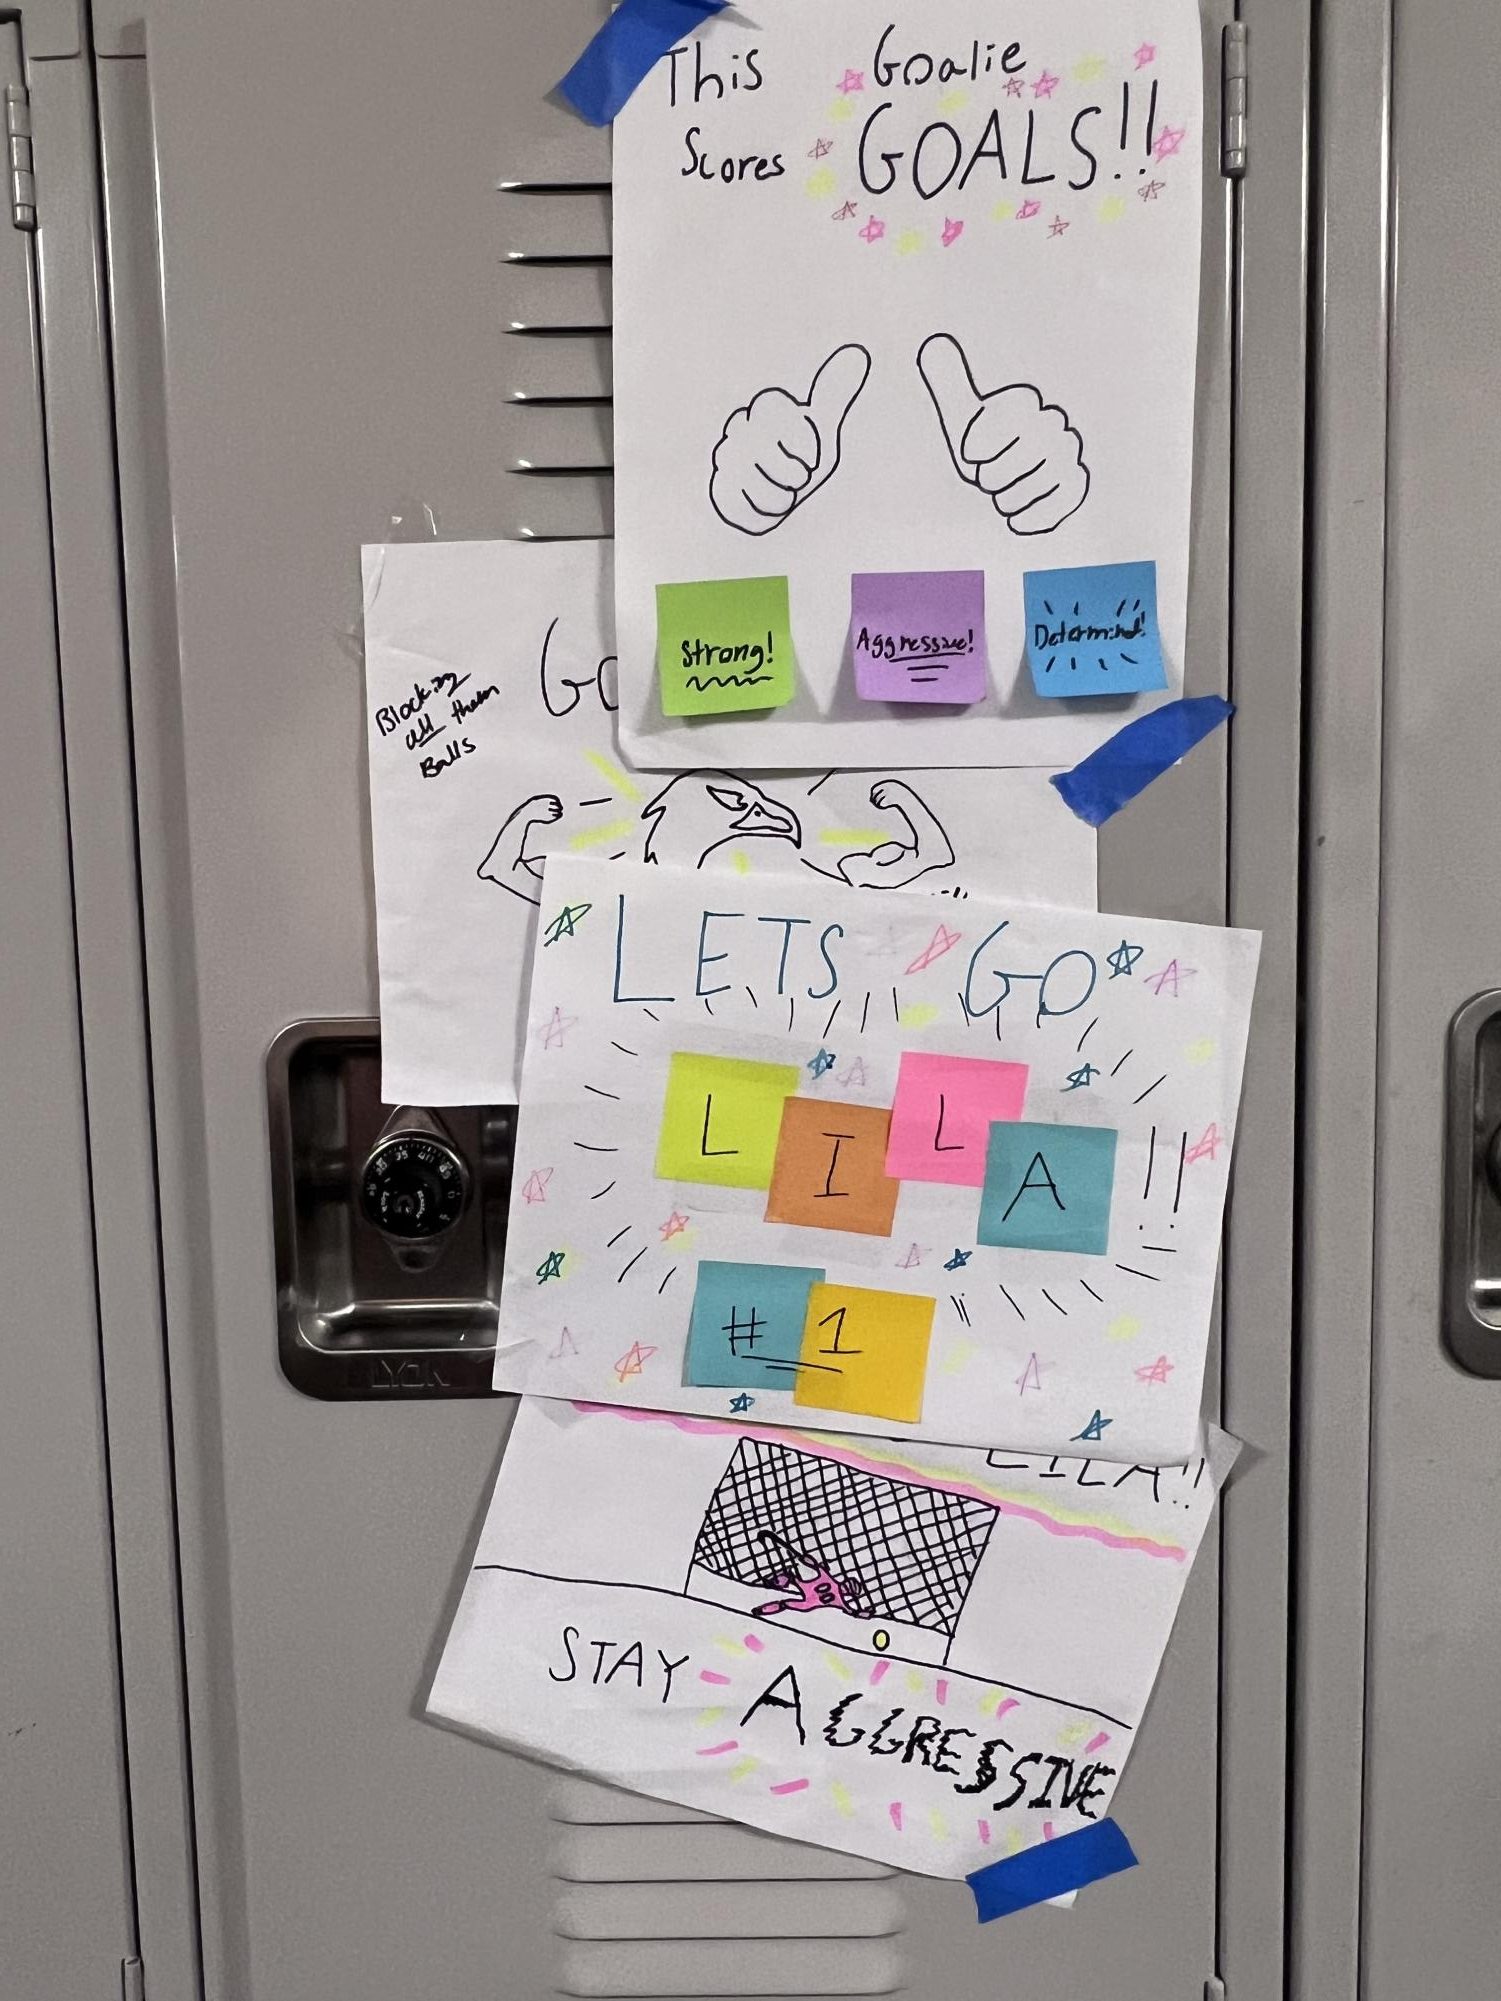 This Goalie
Scores GOALS!!
Strong!
Aggressive!
Determined!
Go
Blocking
all them
Balls
LETS GO
LILA!!
#1
LILA!!
STAY AGGRESSIVE
LYON